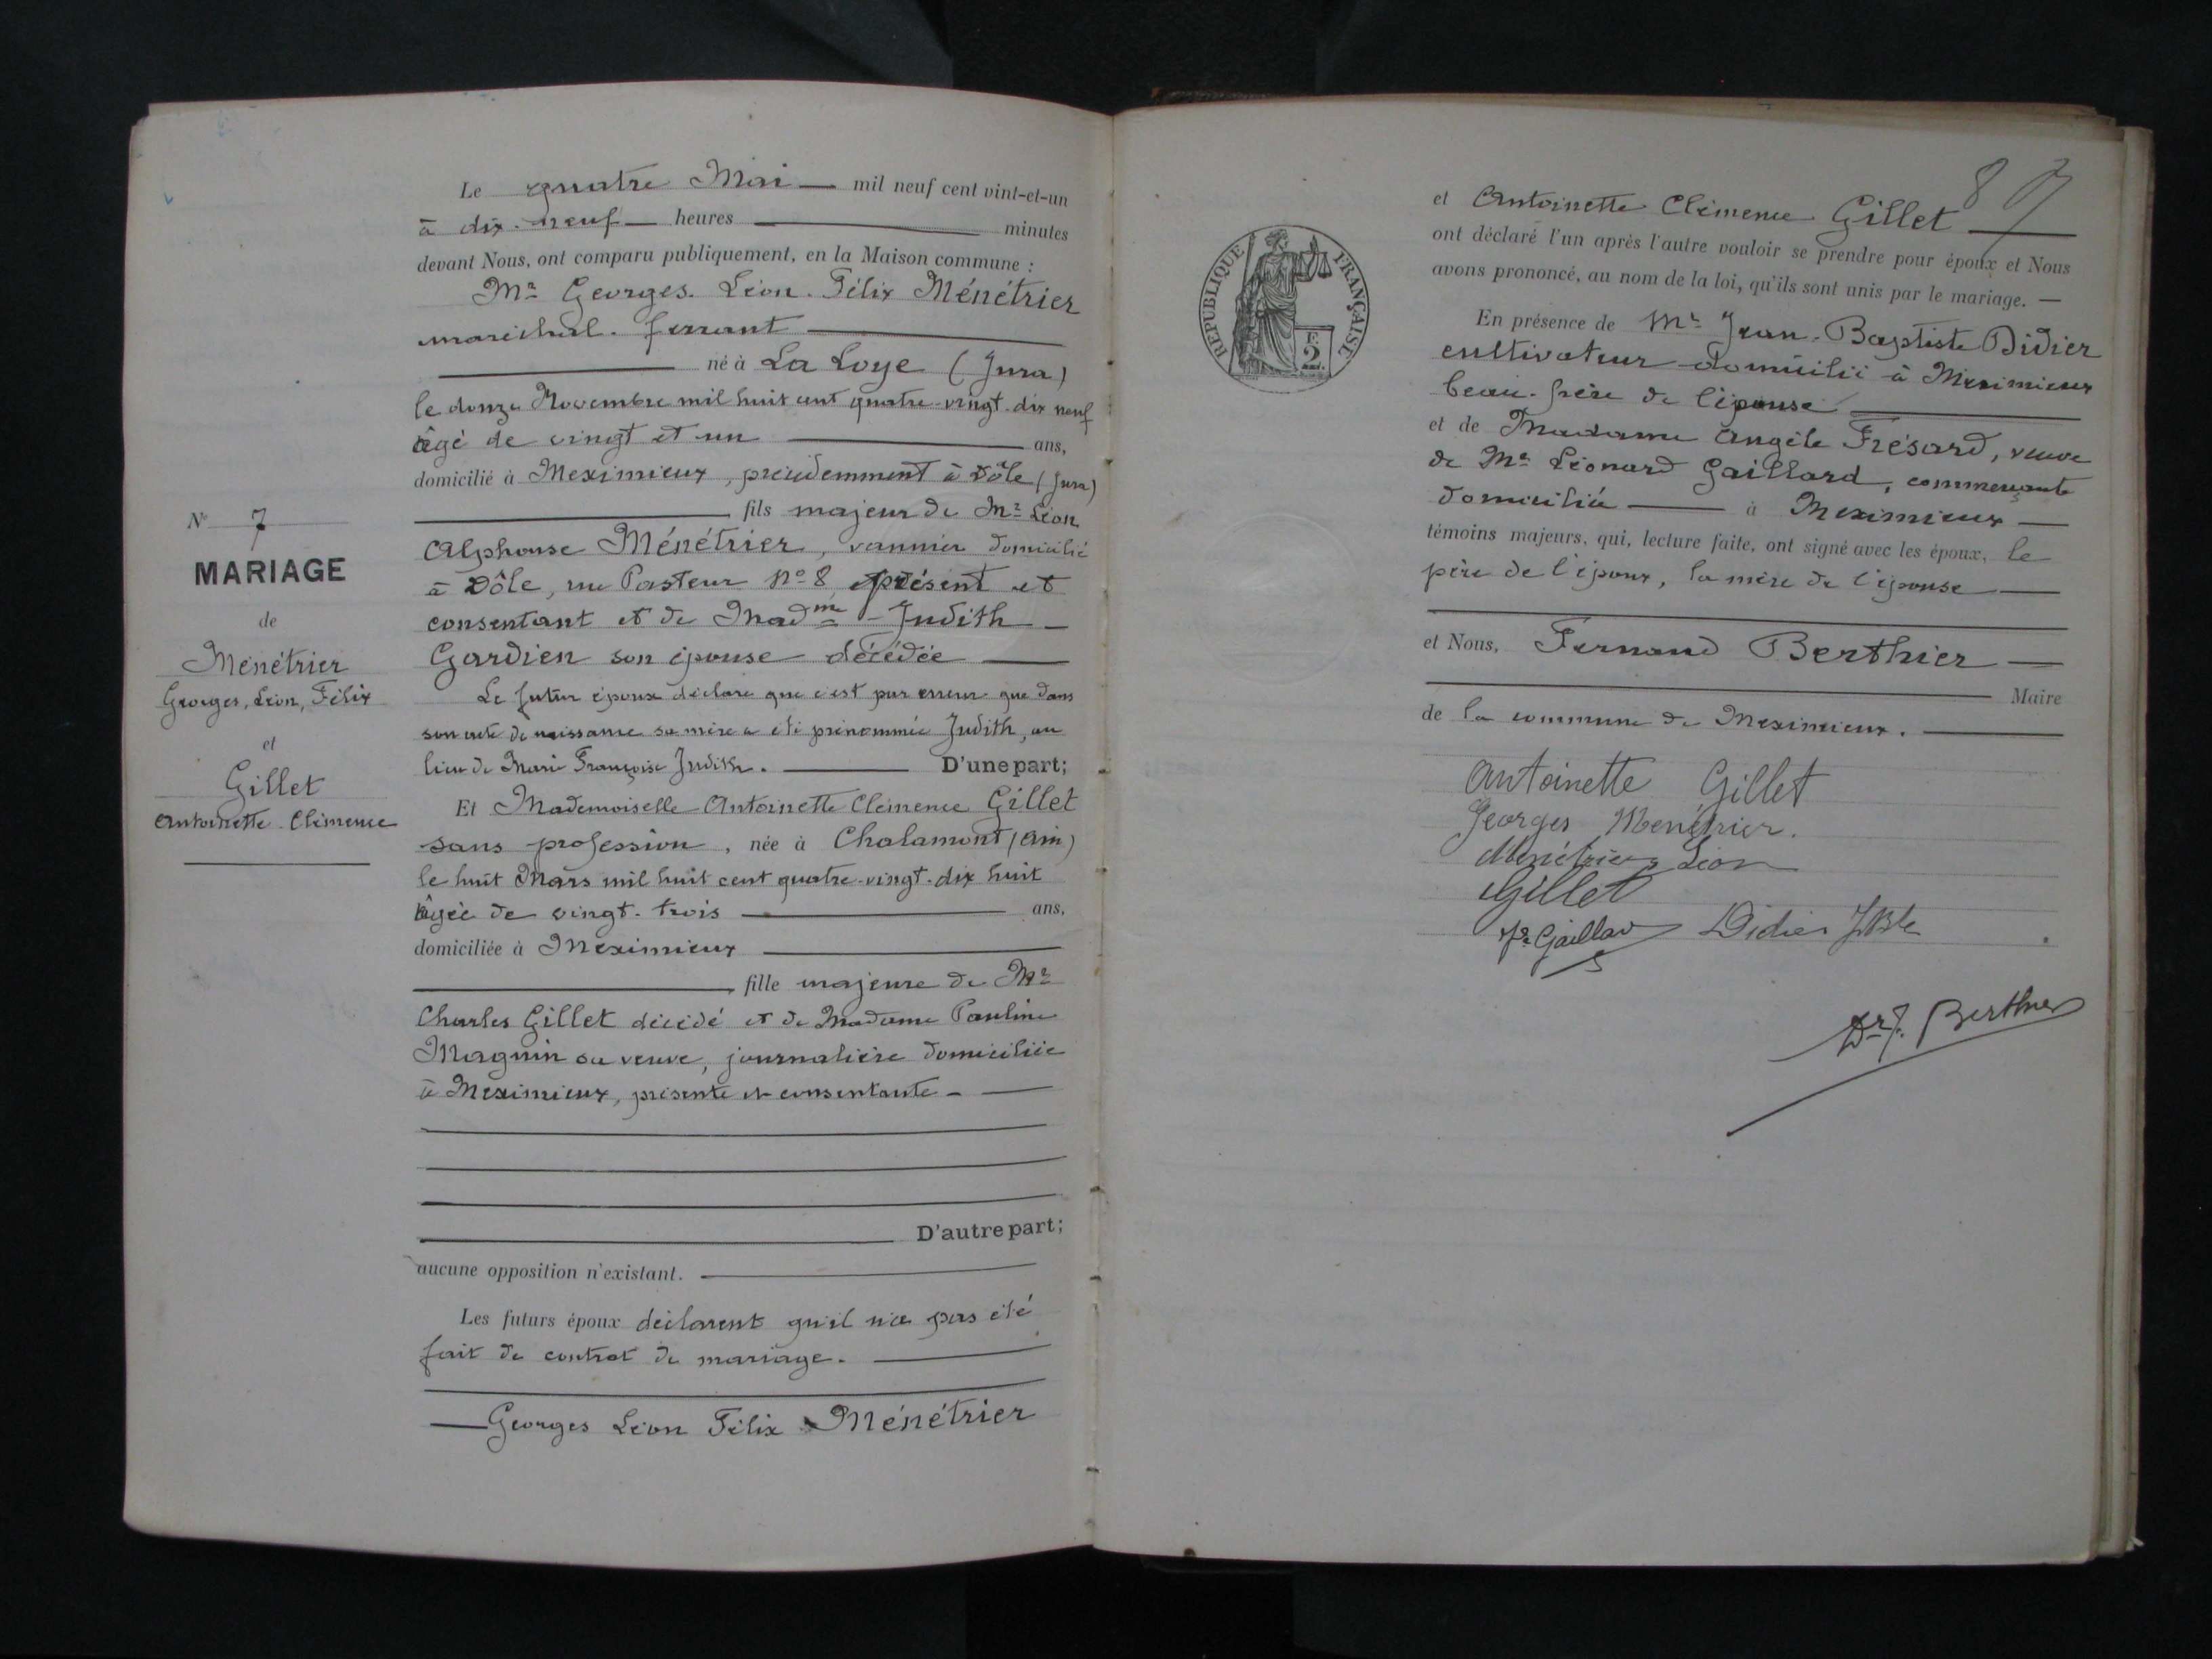 Le quatre Mai — mil neuf cent vint-et-un
à dix-neuf — heures — minutes
devant Nous, ont comparu publiquement, en la Maison commune :
Mr Georges. Léon. Félix Ménétrier
maréchal. ferrant
né à La Loye (Jura)
le douze Novembre mil huit cent quatre-vingt-dix neuf
âgé de vingt et un — ans,
domicilié à Meximieux, précédemment à Dôle (Jura)
fils majeur de Mr Léon
Alphonse Ménétrier, vannier domicilié
à Dôle, rue Pasteur No 8 présent et
consentant et de Madme Judith —
Gardien son épouse décédée —
Le futur époux déclare que c'est par erreur que dans
son acte de naissance sa mère a été prénommée Judith, au
lieu de Marie Françoise Judith. — D'une part;
Et Mademoiselle Antoinette Clémence Gillet
sans profession, née à Chalamont (Ain)
le huit Mars mil huit cent quatre-vingt-dix huit
âgée de vingt-trois — ans,
domiciliée à Meximieux —
fille majeure de Mr
Charles Gillet décédé et de Madame Pauline
Magnin sa veuve, journalière domiciliée
à Meximieux, présente et consentante —
D'autre part;
aucune opposition n'existant. —
Les futurs époux déclarent qu'il n'a pas été
fait de contrat de mariage. —
— Georges Léon Félix Ménétrier
No 7
MARIAGE
de
Ménétrier
Georges, Léon, Félix
et
Gillet
Antoinette Clémence
87
RÉPUBLIQUE FRANÇAISE
2
et Antoinette Clémence Gillet —
ont déclaré l'un après l'autre vouloir se prendre pour époux et Nous
avons prononcé, au nom de la loi, qu'ils sont unis par le mariage. —
En présence de Mr Jean-Baptiste Didier
cultivateur domicilié à Meximieux
beau-frère de l'épouse —
et de Madame Angèle Frésard, veuve
de Mr Léonard Gaillard, commerçante
domiciliée — à Meximieux —
témoins majeurs, qui, lecture faite, ont signé avec les époux, le
père de l'époux, la mère de l'épouse —
et Nous, Fernand Berthier —
Maire
de la commune de Meximieux. —
Antoinette Gillet
Georges Menétrier.
Ménétrier Léon
Gillet
Gaillard Didier JBte
Dr F. Berthier